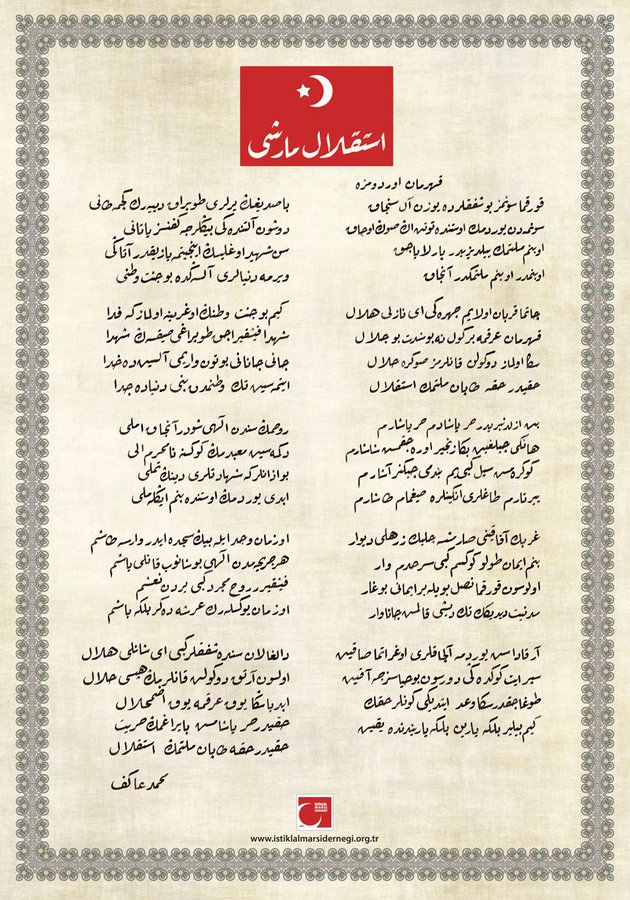 استقلال مارشی
قهرمان اوردومزه
قورقما سونمز بو شفقلرده یوزن آل سنجاق
سونمدن یوردمك اوستنده توتن اڭ صوڭ اوجاق
او بنم ملتمڭ ییلدیزیدر پارلایاجق
او بنمدر او بنم ملتمڭدر آنجاق
چاتما قربان اولایم چهره ڭی ای نازلی هلال
قهرمان عرقمه بر كول نه بو شدت بو جلال
سڭا اولماز دوكولن قانلرمز صوڭره حلال
حقیدر حقه طاپان ملتمڭ استقلال
بن ازلدنبریدر حر یاشادم حر یاشارم
هانكی چیلغین بڭا زنجیر اوره جقمش شاشارم
كوكره مش سیل كبی یم بندمی چیكنر آشارم
ییرتارم طاغلری انكینلره صیغمام طاشارم
غربڭ آفاقنی صارمشسه چلیك زرهلی دیوار
بنم ایمان طولو كوكسم كبی سرحدم وار
اولوسون قورقما نصل بویله بر ایمانی بوغار
مدنیت دیدیكڭ تك دیشی قالمش جاناوار
آرقاداش یوردمه آلچاقلری اوغراتما صاقین
سپر ایت كوكده ڭی دورسون بو حیاسزجه آقین
طوغاجقدر سڭا وعد ایتدیكی كونلر حقڭ
كیم بیلیر بلكه یارین بلكه یاریندنده یقین
باصدیغڭ یرلری طوپراق دییه رك كچمه طانی
دوشون آلتنده كی بیڭلرجه كفنسز یاتانی
سن شهید اوغلیسڭ اینجیتمه یازیقدر آتاڭی
ویرمه دنیالری آلسه ڭده بو جنت وطنی
كیم بو جنت وطنڭ اوغرینه اولماز كه فدا
شهدا فیشقیراجق طوپراغی صیقسه ڭ شهدا
جانی جانانی بوتون واریمی آلسین ده خدا
ایتمسین تك وطنمدن بنی دنیاده جدا
روحمڭ سندن الهی شودر آنجاق املی
دكمه سین معبدمڭ كوكسنه نامحرم الی
بو اذانلر كه شهادتلری دینڭ تملی
ابدی یوردمڭ اوستنده بنم ایڭله ملی
او زمان وجد ایله بیڭ سجده ایدر وارسه طاشم
هر جریحه مدن الهی بوشانوب قانلی یاشم
فیشقیرر روح مجرد كبی یردن نعشم
او زمان یوكسله رك عرشه ده كر بلكه باشم
دالغالان سنده شفقلر كبی ای شانلی هلال
اولسون آرتق دوكولن قانلرمڭ هپسی حلال
ابدیا سڭا یوق عرقمه یوق اضمحلال
حقیدر حر یاشامش بایراغمڭ حریت
حقیدر حقه طاپان ملتمڭ استقلال
محمد عاكف
İSTİKLAL MARŞI DERNEĞİ
www.istiklalmarsidernegi.org.tr